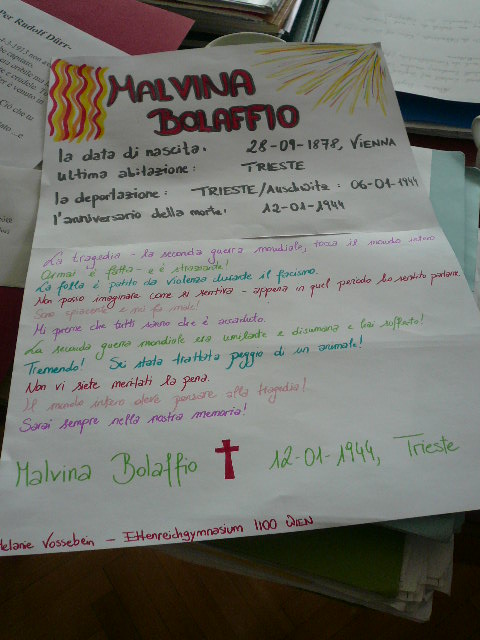 Per Rudolf Dürr-
MALVINA
BOLAFFIO
la data di nascita: 28-09-1878, VIENNA
ultima abitazione: TRIESTE
la deportazione: TRIESTE/Auschwitz: 06-01-1944
l'anniversario della morte: 12-01-1944
La tragedia - la seconda guerra mondiale, tocca il mondo intero
Ormai è fatta - e è straziante!
La folla è patito da violenza durante il fascismo.
Non posso imaginare come si sentiva - appena in quel periodo ho sentito parlarne.
Sono spiacente e mi fa male!
Mi preme che tutti sanno che è accaduto.
La seconda guerra mondiale era umilante e disumana e hai sofferto!
Tremendo! Sei stata trattata peggio di un animale!
Non vi siete meritati la pena.
Il mondo intero deve pensare alla tragedia!
Sarai sempre nella nostra memoria!
Malvina Bolaffio 12-01-1944, Trieste
Melanie Vossebein - Ettenreichgymnasium 1100 WIEN